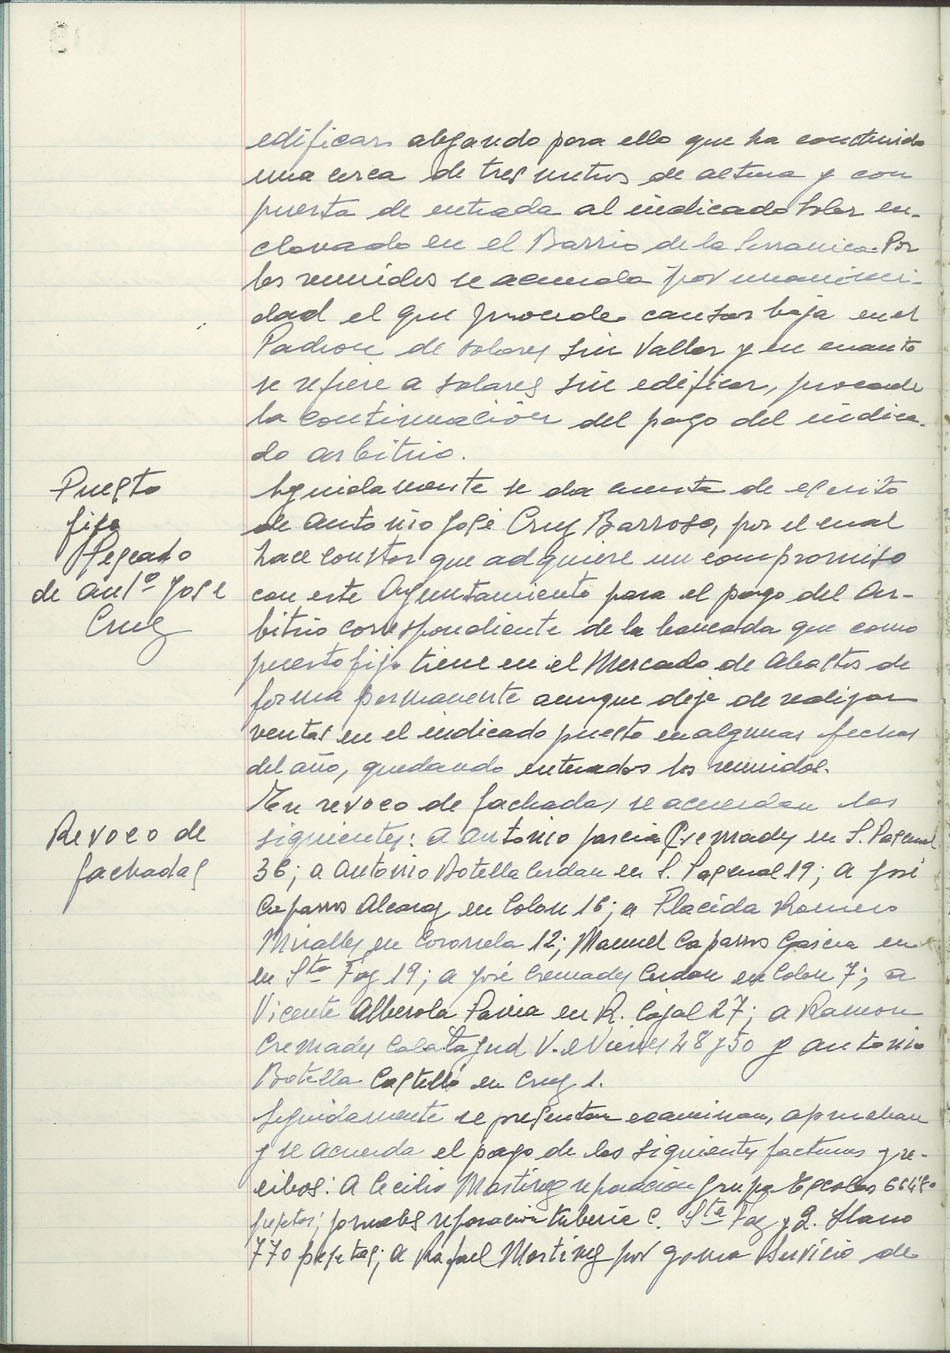 edificar alegando para ello que ha construido
una cerca de tres metros de altura y con
puerta de entrada al indicado solar en-
clavado en el Barrio de la Serranica. Por
los reunidos se acuerda por unanimi-
dad el que procede causar baja en el
Padron de solares sin vallar y en cuanto
se refiere a solares sin edificar, procede
la continuación del pago del indica-
do arbitrio.
Puesto
fijo
Mercado
de Antº José
Cruz
Seguidamente se da cuenta de escrito
de Antonio José Cruz Barroso, por el cual
hace constar que adquiere un compromiso
con este Ayuntamiento para el pago del Ar-
bitrio correspondiente de la bancada que como
puesto fijo tiene en el Mercado de Abastos de
forma permanente aunque deje de realizar
ventas en el indicado puesto en algunas fechas
del año, quedando enterados los reunidos.
Revoco de
fachadas
En revoco de fachadas se acuerdan los
siguientes: a Antonio Garcia Cremades en S. Pascual
36; a Antonio Botella Cerdan en S. Pascual 19; a José
Caparros Alcaraz en Colon 16; a Placida Romero
Miralles en Coronela 12; Manuel Caparros Garcia en
en Sta Faz 19; a José Cremades Cerdan en Colon 7; a
Vicente Alberola Pavia en R. Cajal 27; a Ramon
Cremades Calatayud V. e Nieves 48 y 50 y Antonio
Botella Castelló en Cruz 1.
Seguidamente se presentan examinan, aprueban
y se acuerda el pago de las siguientes facturas y re-
cibos: A Cecilio Martinez reparacion Grupo Escolar
pesetas; jornales reparacion tuberia C. Sta Faz y Llano
770 pesetas; a Rafael Martinez por goma Servicio de